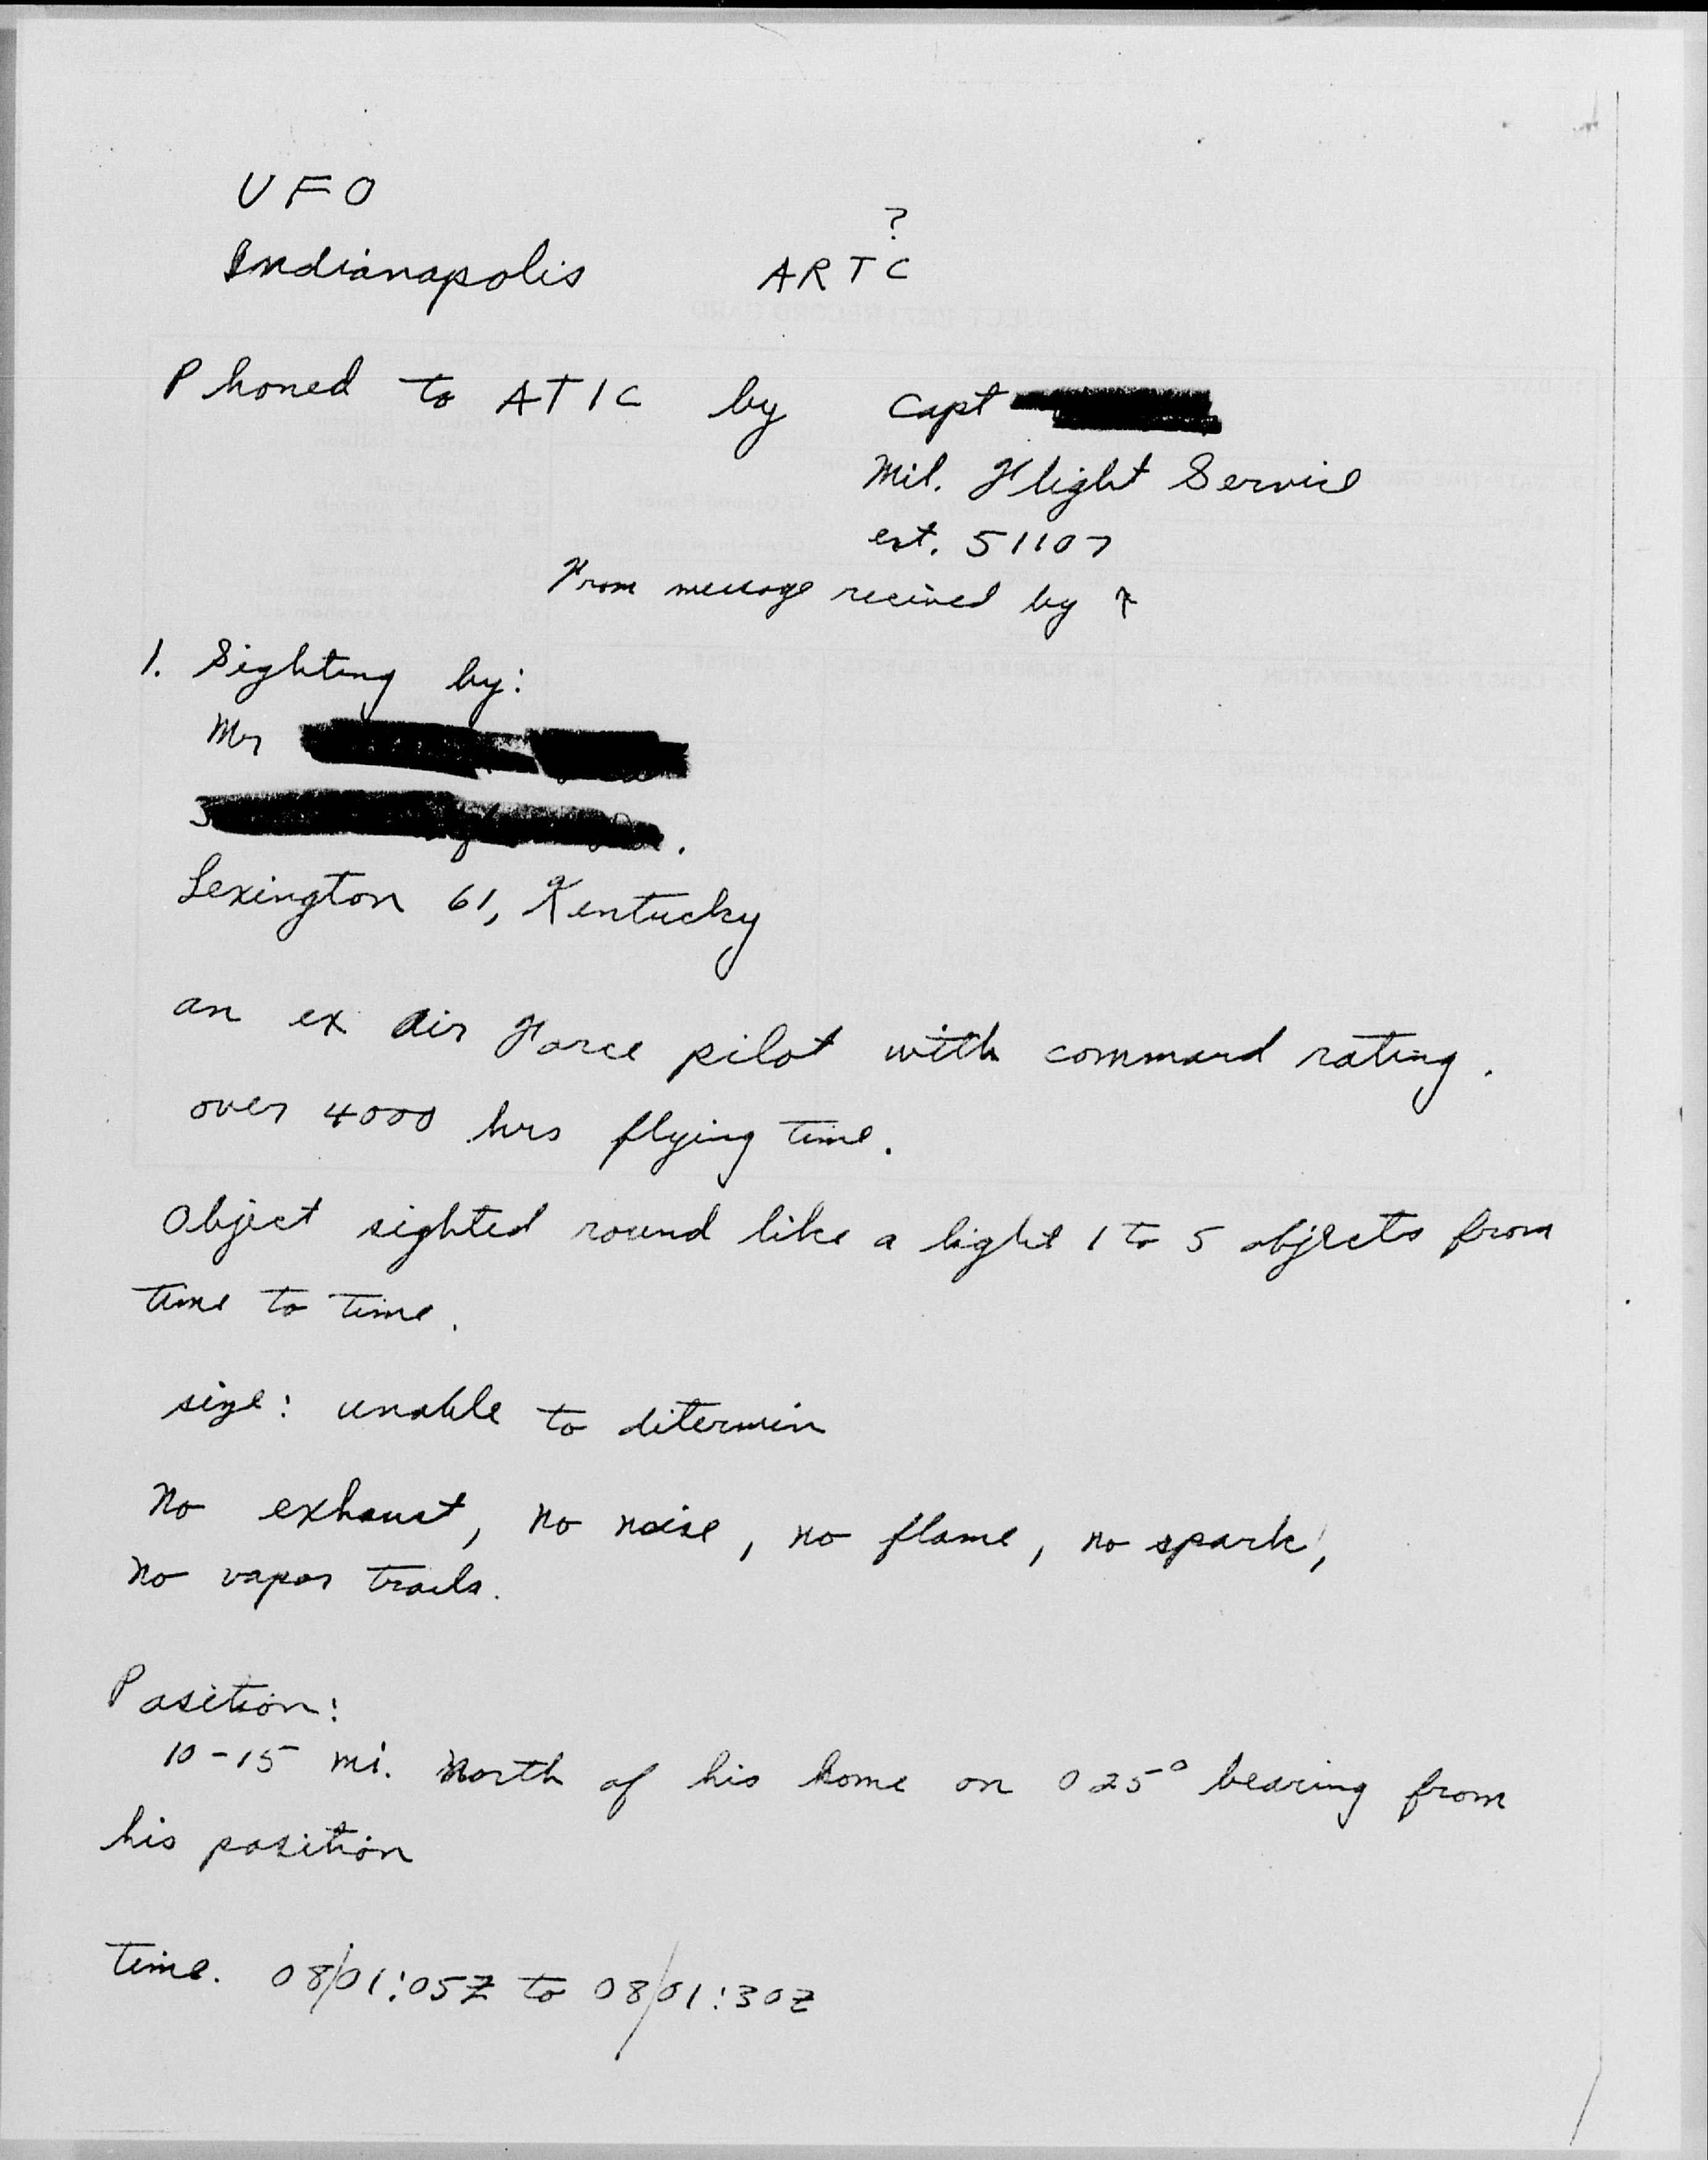 UFO
?
Indianapolis ARTC
Phoned to ATIC by Capt
Mil. Flight Service
ext. 51107
From message recieved by ?
1. Sighting by:
Mr
Lexington 61, Kentucky
an ex Air Force pilot with command rating.
over 4000 hrs flying time.
Object sighted round like a light 1 to 5 objects from
time to time.
size: unable to ditermin
No exhaust, no noise, no flame, no spark,
No vapor trails.
Position:
10-15 mi. North of his home on 025° bearing from
his position
Time. 08/01:05Z to 08/01:30Z